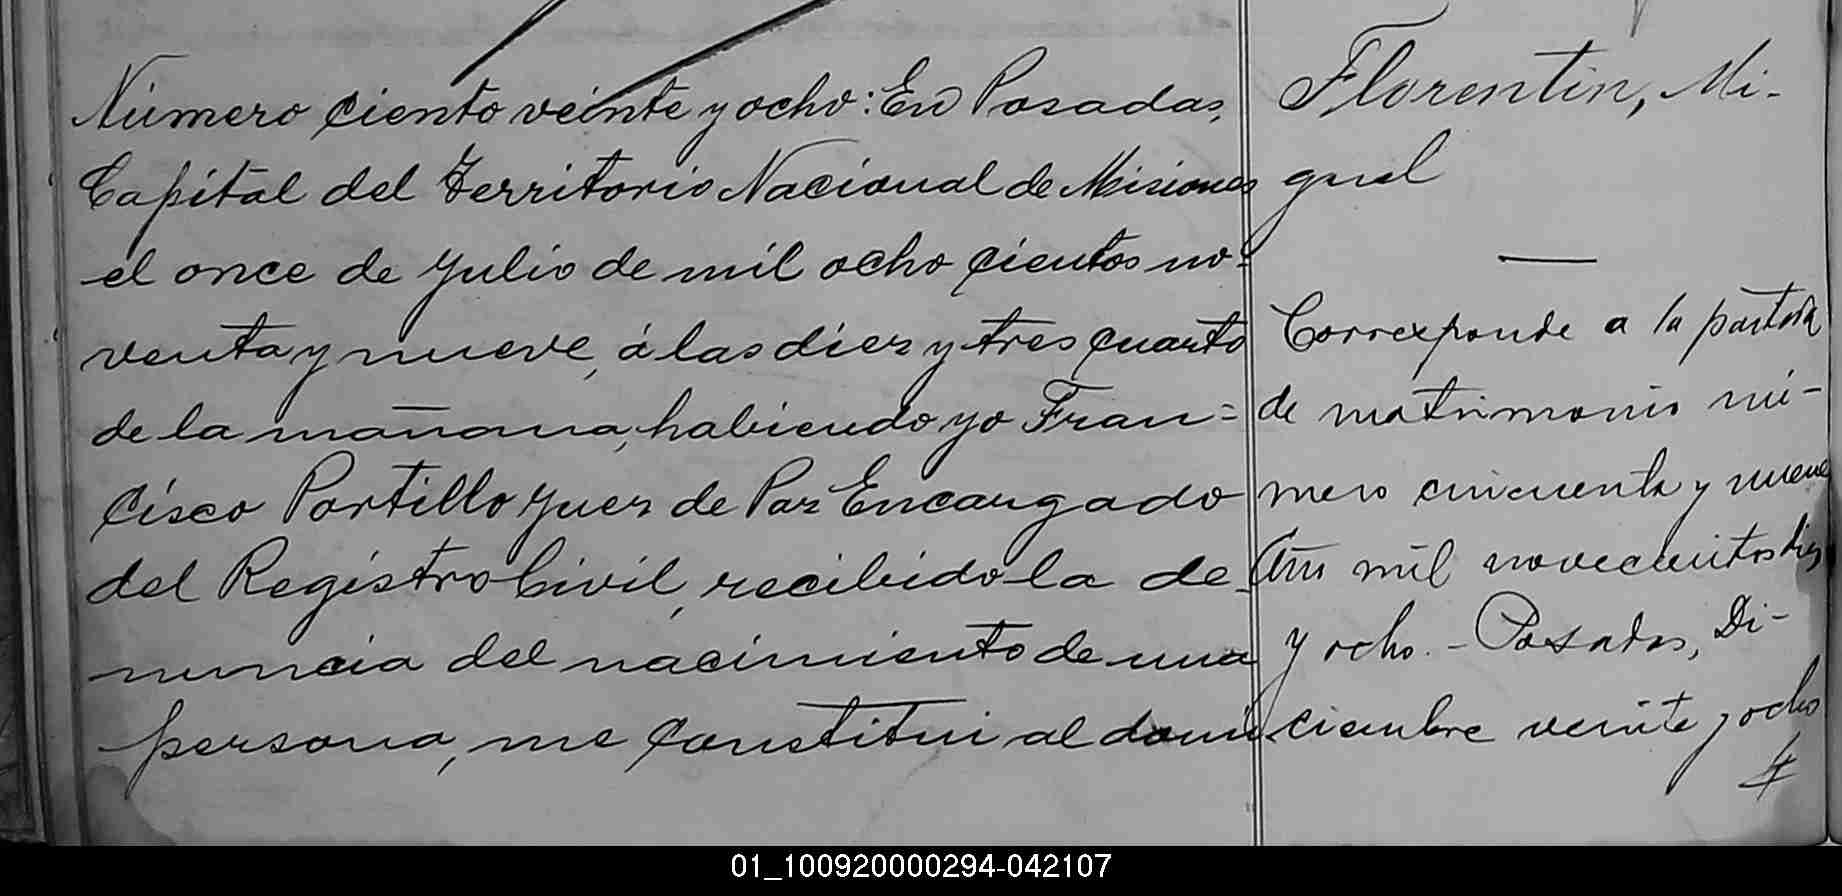 Número ciento veinte y ocho: En Posadas,
Capital del Territorio Nacional de Misiones
el once de Julio de mil ocho cientos no-
venta y nueve, á las diez y tres cuarto
de la mañana, habiendo yo Fran=
cisco Portillo Juez de Paz Encargado
del Registro Civil, recibido la de-
nuncia del nacimiento de una
persona, me constitui al domi
Florentin, Mi-
guel
Corresponde a la partida
de matrimonio nú-
mero cincuenta y nueve
Año mil novecientos diez
y ocho. - Posadas, Di-
ciembre veinte y ocho
01_100920000294-042107